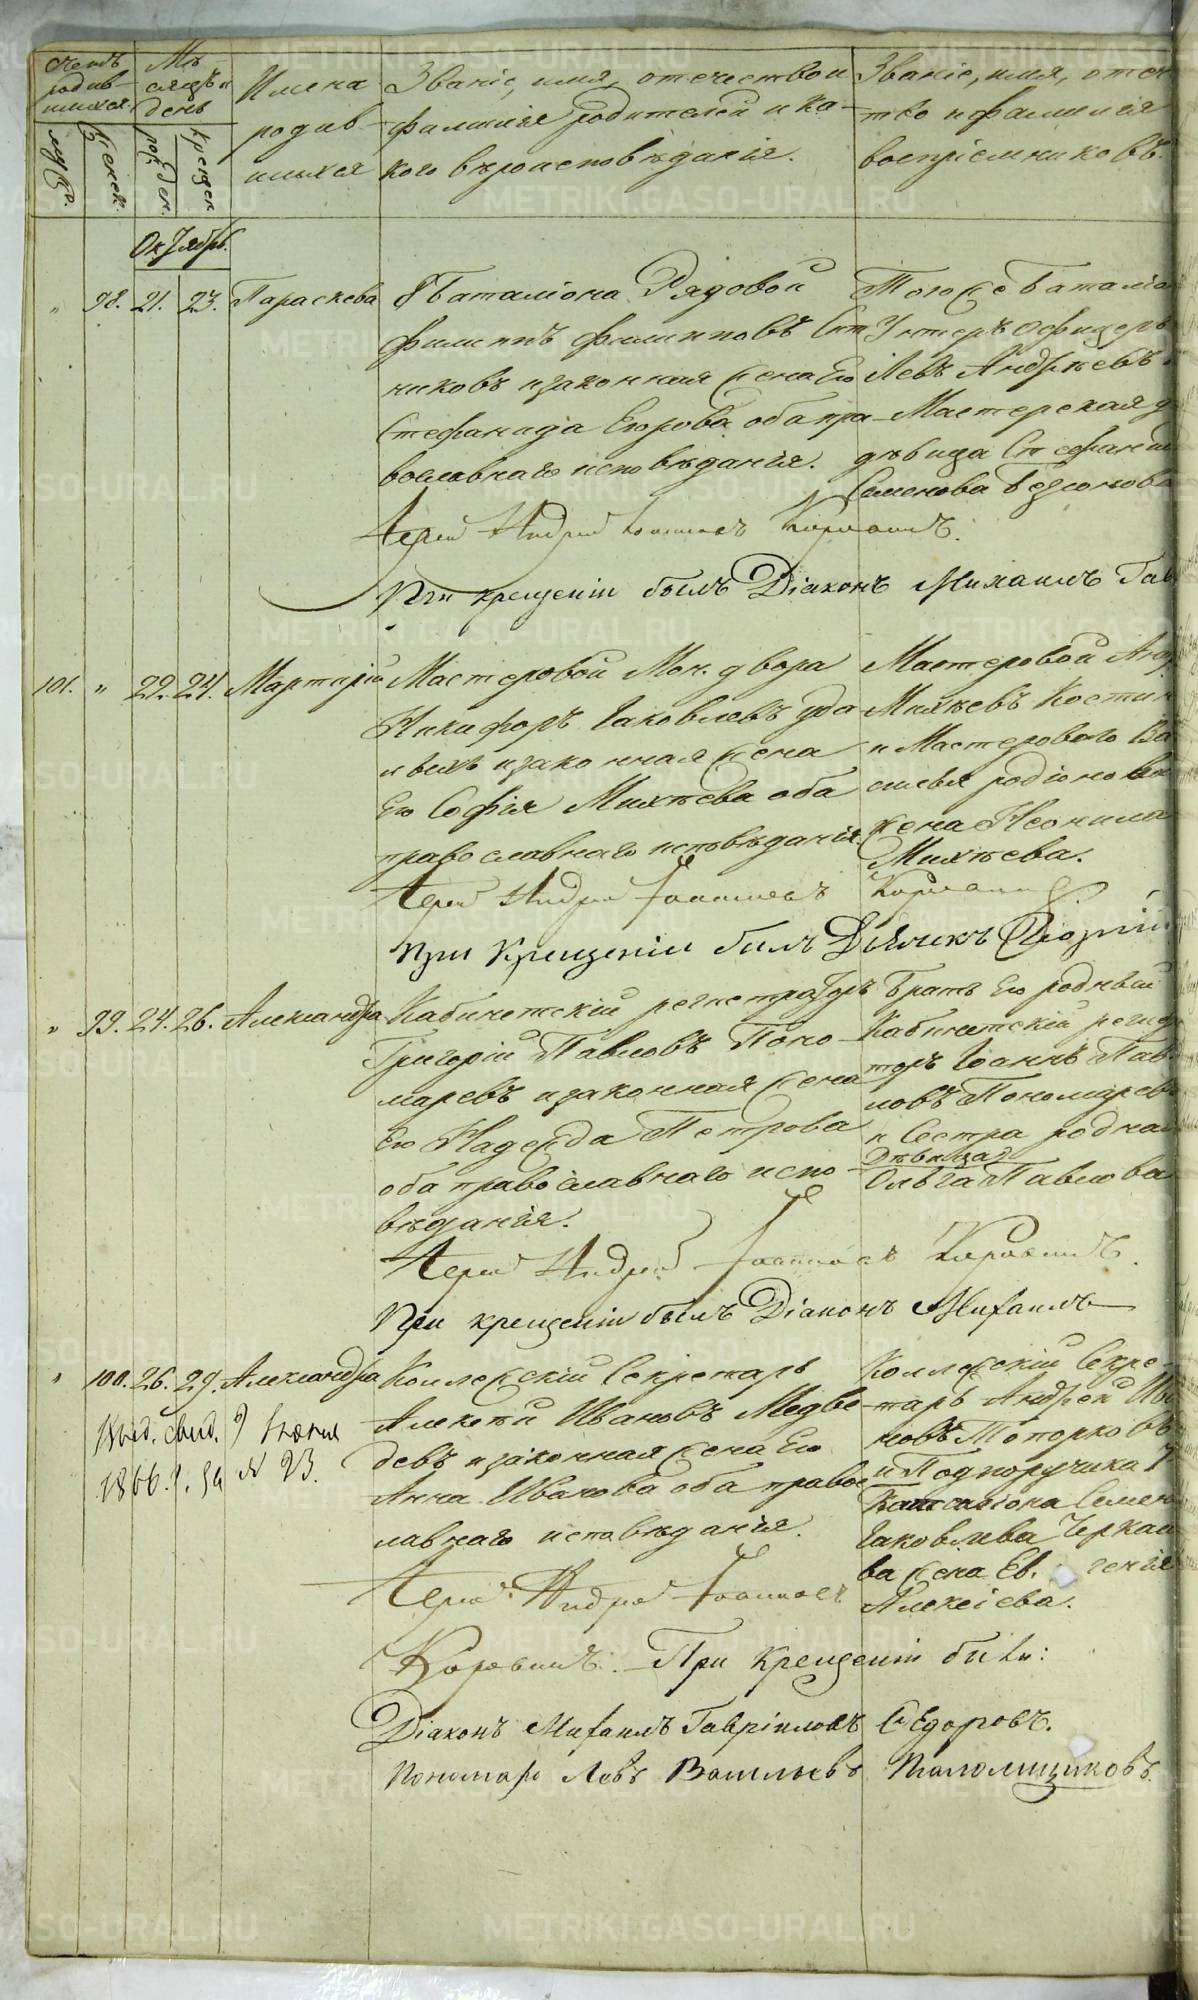 Счетъ родив-шихся.
Мѣсяцъ и день
Имена родив-шихся
Званіе, имя, отечество и фамилія родителей и ка-кого вѣроисповѣданія.
Званіе, имя, отеч
тво и фамилія
воспріемниковъ.
муж. женск. рожден. крещен.
Октябрь.
" 98. 21. 23. Параскева
8 Баталіона Рядовой
Филиппъ Филипповъ Сит
никовъ и законная жена Его
Стефанида Егорова оба пра-
вославнаго исповѣданія.
Того же Баталіо
Унтеръ Офицеръ
Левъ Андреевъ
Мастерская д
дѣвица Стефани
Семенова
Іерей Андрей Іоанновъ
При крещеніи былъ Діаконъ Михаилъ Гав
101. " 22. 24. Мартирій
Мастеровой Мон. двора
Никифоръ Іаковлевъ Уда
льихъ и законная жена
Его Софія Михѣева оба
православнаго исповѣданія.
Мастеровой
Михѣевъ Кости
и Мастероваго Ва
силья Родіонова
жена Неонила
Михѣева.
Іерей Андрей Іоанновъ
При крещеніи былъ Дьячекъ
" 99. 24. 26. Александра
Кабинетскій регистраторъ
Григорій Павловъ Поно-
маревъ и законная жена
Его Надежда Петрова
оба православнаго испо-
вѣданія.
Братъ Его родный
Кабинетскій регис
торъ Іоаннъ Пав-
ловъ Пономарев
и Сестра родная
Дѣвица
Ольга Павлова
Іерей Андрей Іоанновъ
При крещеніи былъ Діаконъ Михаилъ
" 100. 26. 29. Александра
Выд. свид. 9 Іюня
1866 г. за № 23.
Коллежскій Секретарь
Алексѣй Ивановъ Медве-
девъ и законная жена Его
Анна Иванова оба правос
лавнаго исповѣданія.
Коллежскій Секре-
тарь Андрей Ива
новъ Топорковъ
и Подпоручика 7
Баталіона Семен
Іаковлева Черкас
ва жена Ев генія
Алексіева.
Іерей Андрей Іоанновъ
При крещеніи были:
Діаконъ Михаилъ Гавріиловъ Ѳедоровъ.
Пономарь Левъ Васильевъ
METRIKI.GASO-URAL.RU